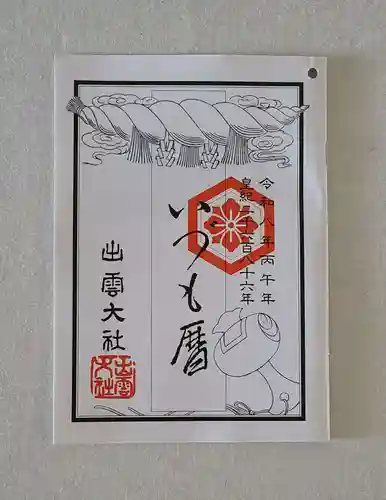 令和八年丙午年
皇紀二千六百八十六年
いづも暦
出雲大社
出雲
大社